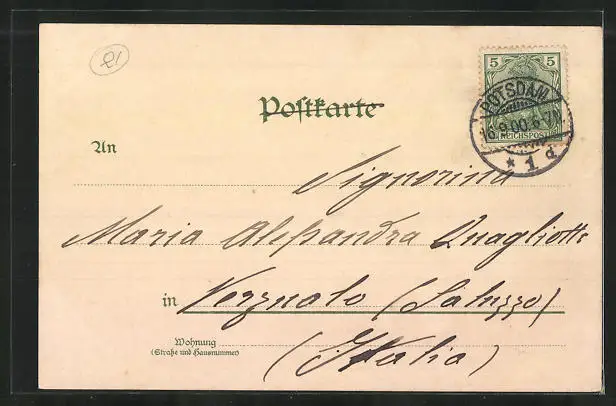 21
5 5
REICHSPOST
POTSDAM
16.9.00.6-7N.
* 1 d
Postkarte
An
Signorina
Maria Alessandra Quagliotti
in Verzuolo (Saluzzo)
Wohnung
(Straße und Hausnummer)
(Italia)